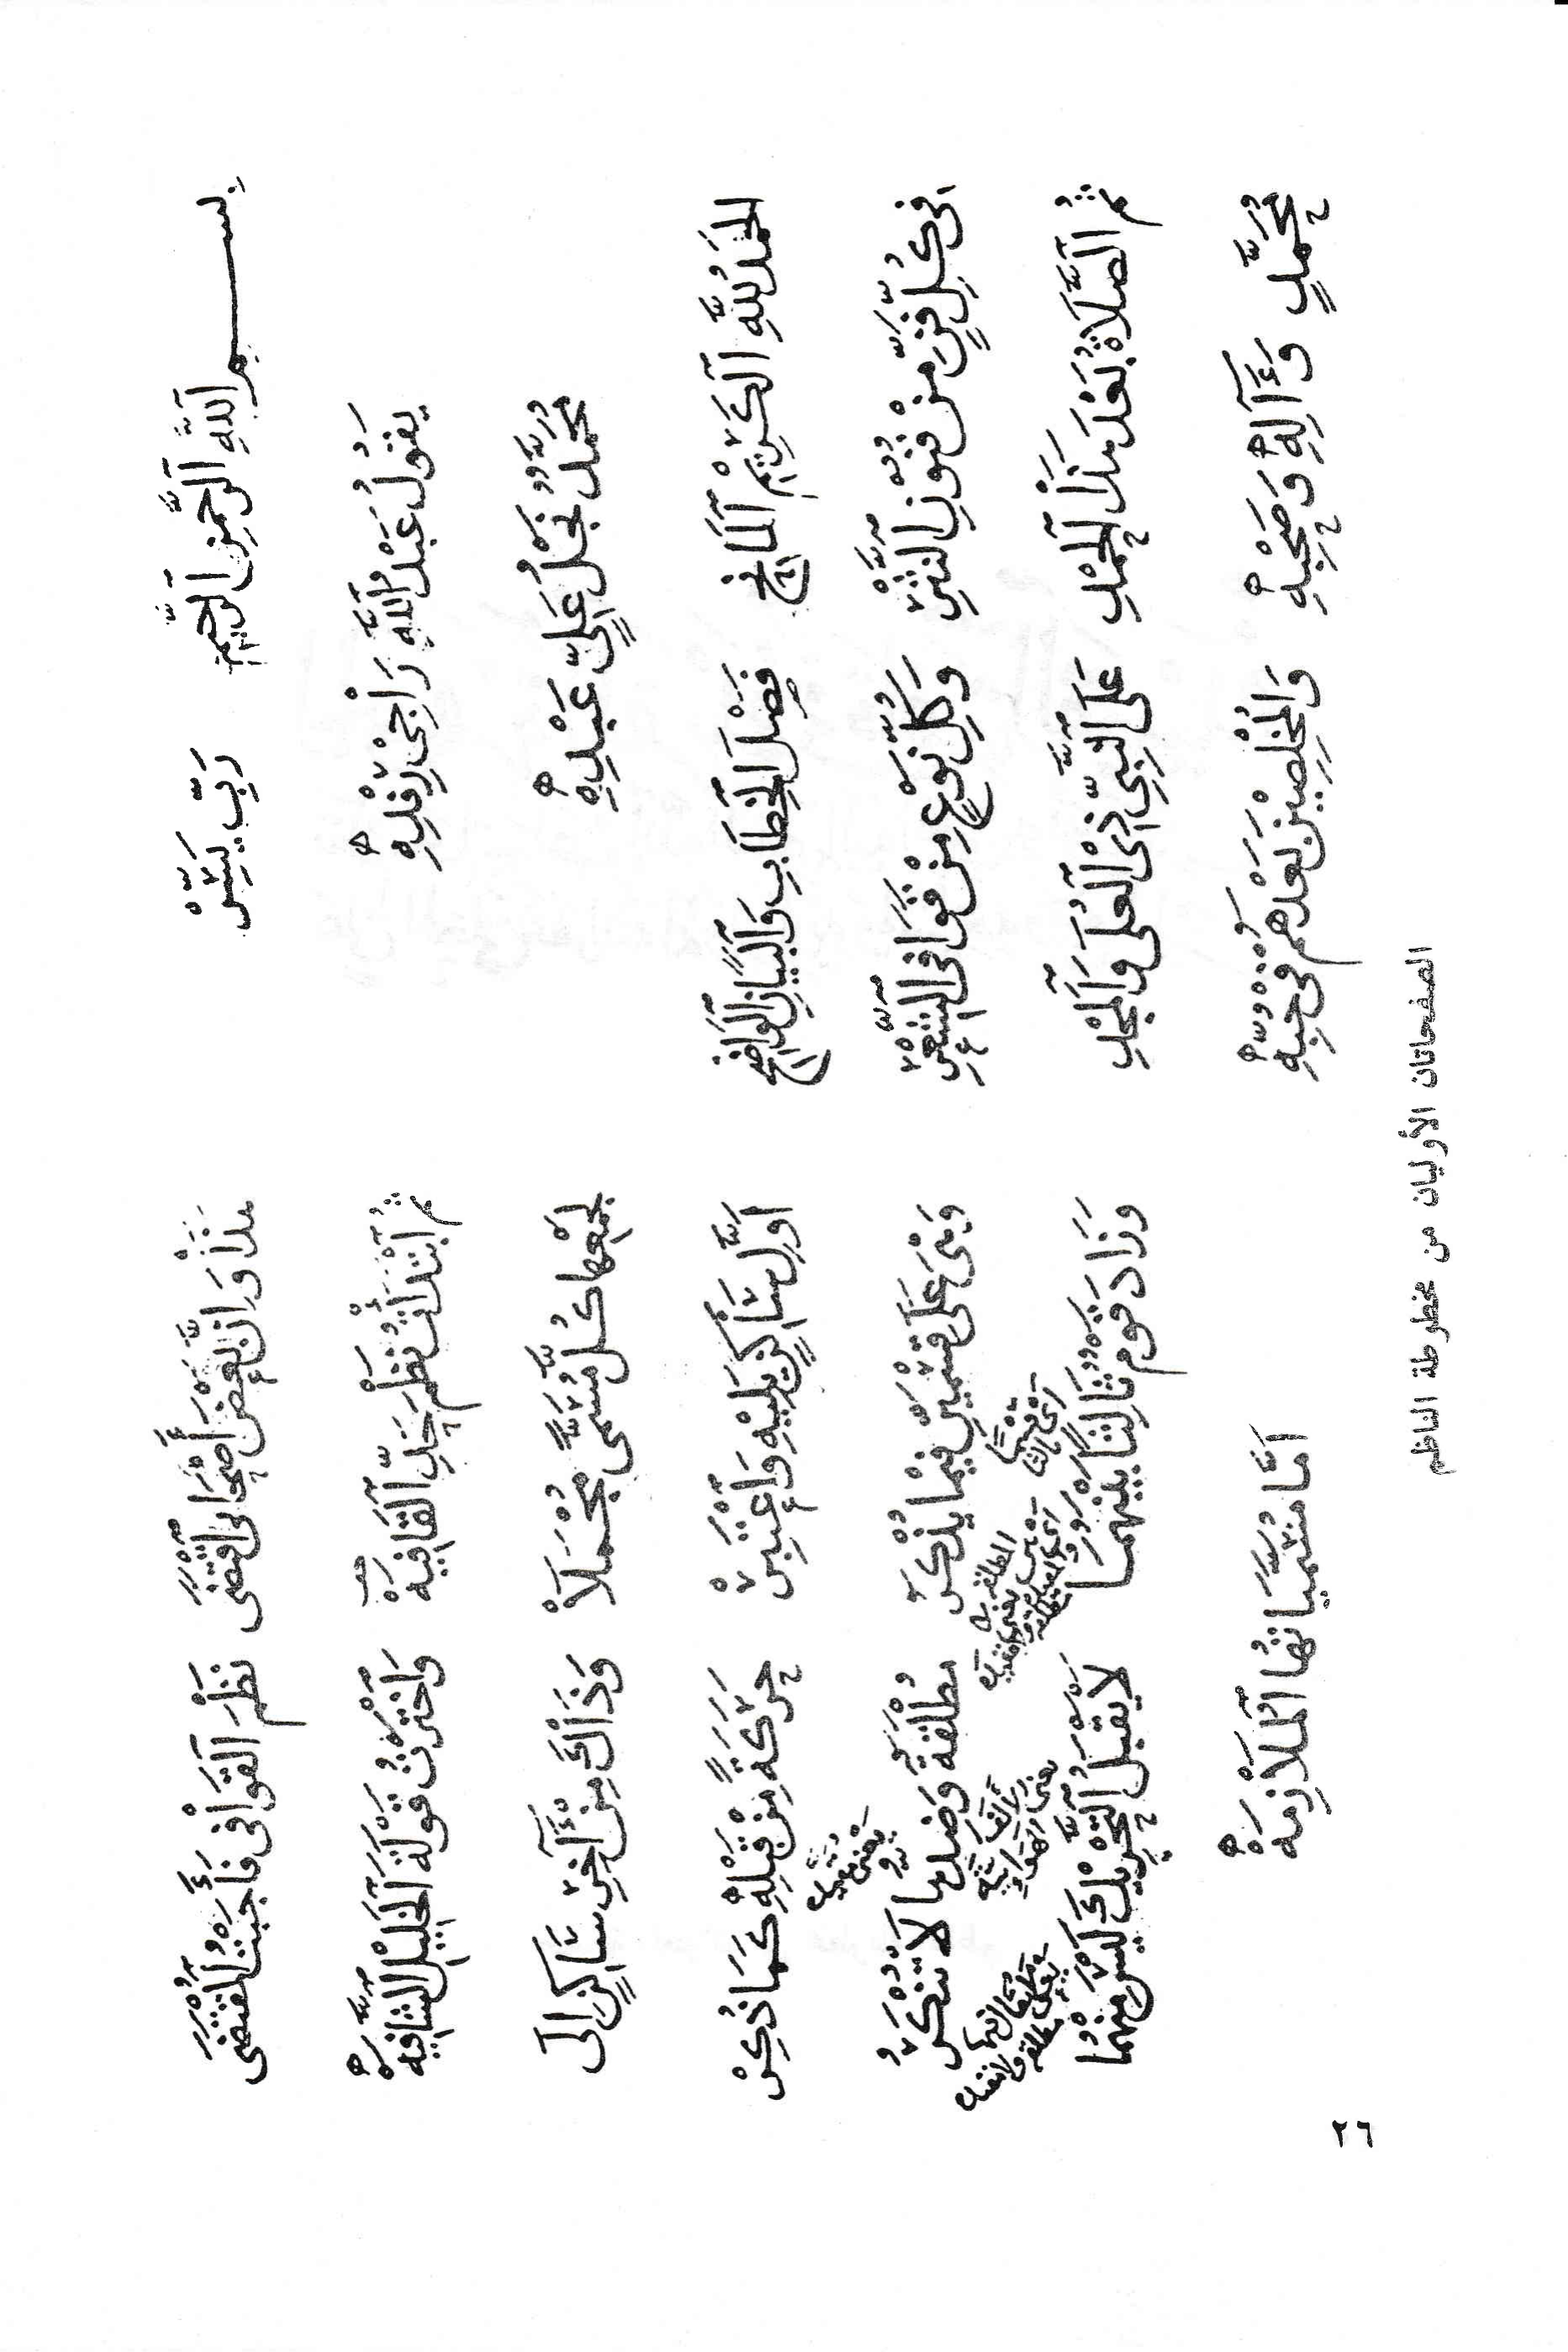 بِسْمِ اللَّهِ الرَّحْمَنِ الرَّحِيمِ رَبِّ يَسِّرْ
يَقُولُ عَبْدُ اللَّهِ رَاجِيْ رِفْدِهِ
مُحَمَّدُ نَجْلُ عَلِيٍّ عَبْدِهِ
الحَمْدُ لِلَّهِ الْكَرِيْمِ الْمَانِحِ فَصْلَ الْخِطَابِ وَالْبَيَانِ الْوَاضِحِ
فِي كُلِّ فَنٍّ مِنْ فُنُوْنِ النَّثْرِ وَكُلِّ نَوْعٍ مِنْ قَوَافِي الشِّعْرِ
ثُمَّ الصَّلَاةُ بَعْدَ هَذَا الْحَمْدِ عَلَى النَّبِيِّ ذِي الْعُلَى وَالْمَجْدِ
مُحَمَّدٍ وَءَالِهِ وَصَحْبِهِ وَالْمُخْلِصِيْنَ بَعْدَهُمْ فِي حُبِّهِ
هَذَا وَإِنَّ بَعْضَ أَصْحَابِي اقْتَضَى نَظْمَ الْقَوَافِي فَأَجَبْتُ الْمُقْتَضَى
ثُمَّ ابْتَدَأْتُ نَظْمَ حَدِّ الْقَافِيَهْ وَاخْتَرْتُ قَوْلَةَ الْخَلِيْلِ الشَّافِيَهْ
لِجَمْعِهَا كُلَّ مُسَمًّى مُجْمَلَا وَذَاكَ مِنْ ءَاخِرِ سَاكِنٍ إِلَى
أَوَّلِ سَاكِنٍ يَلِيْهِ وَاعْتَبِرْ حَرَكَةً مِنْ قَبْلِهِ كَمَا ذُكِرْ
وَهْيَ عَلَى قِسْمَيْنِ فِيْمَا يُذْكَرُ مُطْلَقَةٌ وَضِدُّهَا لَا تُنْكَرُ
وَزَادَ قَوْمٌ ثَالِثًا بَيْنَهُمَا لَا يَقْبَلُ التَّحْرِيْكَ لَيْسَ مِنْهُمَا
أَمَّا مُسَمَّيَاتُهَا الْمُلَازِمَهْ
الصفحاتان الأوليان من مخطوطة الناظم
٢٦